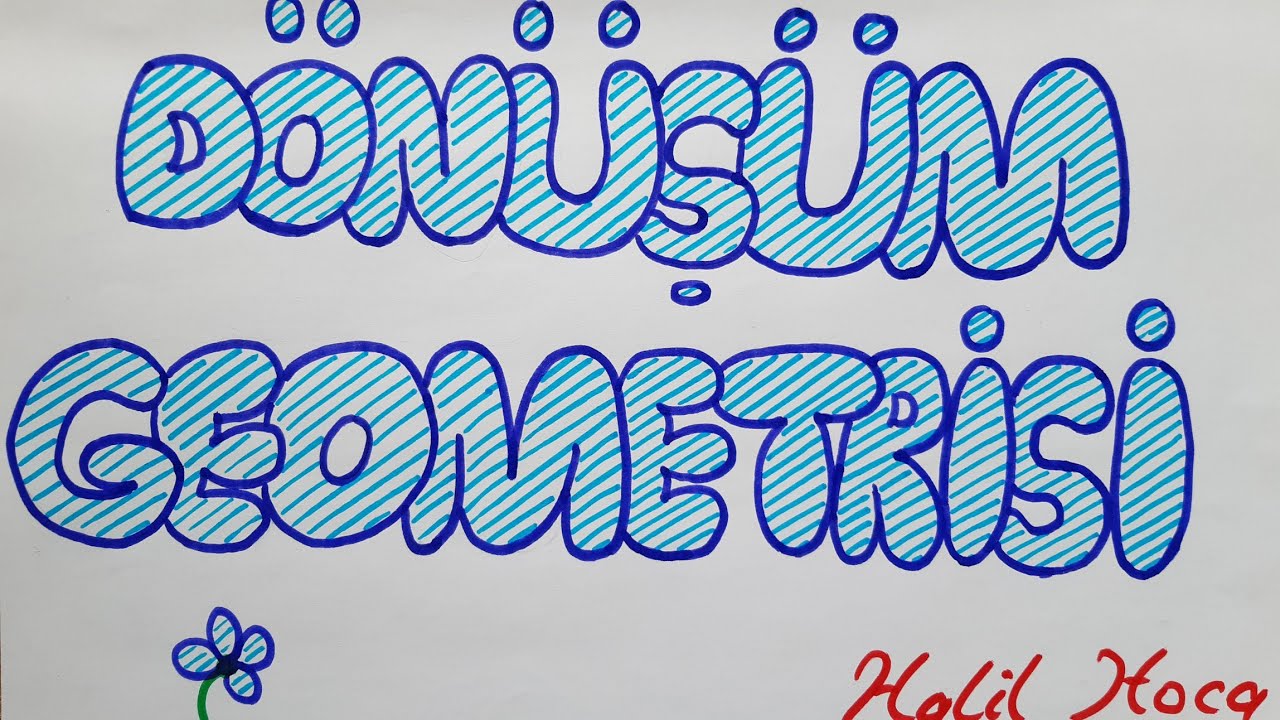 DÖNÜŞÜM
GEOMETRİSİ
Halil Hoca